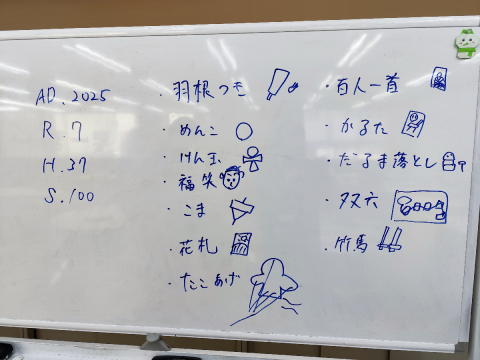 AD.2025
R.7
H.37
S.100
・羽根つき
・めんこ
・けん玉
・福笑
・こま
・花札
・たこあげ
・百人一首
・かるた
・だるま落とし
・双六
・竹馬